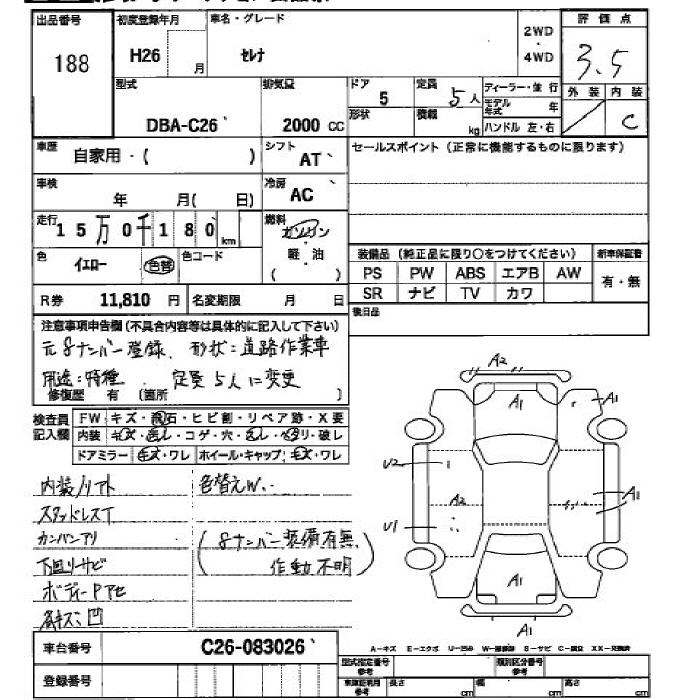 出品番号 初度登録年月 車名・グレード 2WD・4WD 評価点
188 H26 月 セレナ 3.5
外装 内装
C
型式 排気量 ドア 定員 ディーラー・並行
DBA-C26 2000 CC 5 5人 モデル年式 年
形状 積載 kg ハンドル 左・右
車歴 自家用・( ) シフト AT
セールスポイント(正常に機能するものに限ります)
車検 年 月( 日) 冷房 AC
走行 15万0千180 km 燃料 ガソリン・軽・油 ( )
色 イエロー 色替 色コード
装備品(純正品に限り○をつけてください) 新車保証書
PS PW ABS エアB AW 有・無
SR ナビ TV カワ
R券 11,810 円 名変期限 月 日
後日品
注意事項申告欄(不具合内容等は具体的に記入して下さい)
元8ナンバー登録、形状:道路作業車
用途:特種、定員5人に変更
修復歴 有 〔箇所 〕
検査員記入欄 FW キズ・飛石・ヒビ割・リペア跡・X要
内装 キズ・汚レ・コゲ・穴・スレ・ヘタリ・破レ
ドアミラー キズ・ワレ ホイール・キャップ キズ・ワレ
内装ノリアト 色替えW、
スタッドレスT
カンバンアリ (8ナンバー装備有無、
下回リサビ 作動不明)
ボディーPアセ
凹
A2
A1
A1
U2
A2
A1
U1
A1
A1
車台番号 C26-083026
登録番号
A-キズ E-エクボ U-凹み W-補修跡 S-サビ C-腐食 XX-交換済
型式指定番号 参考 類別区分番号 参考
車庫証明用 参考 長さ cm 幅 cm 高さ cm